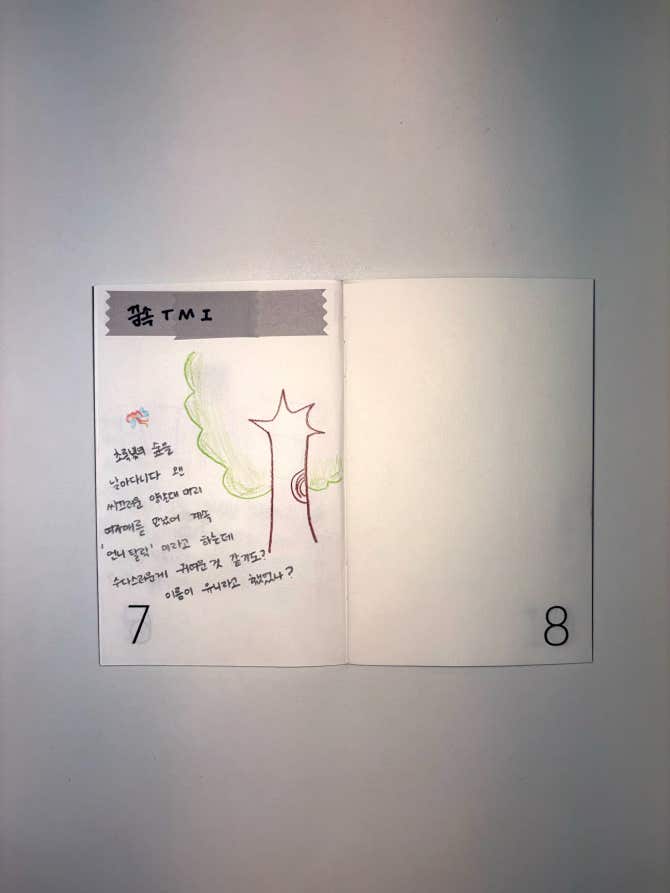 꿈속 TMI
초록빛의 숲을
날아다니다 웬
씨끄러운 양갈대 머리
여자애를 만났어 계속
'언니 탈락' 이라고 하는데
수다스러운게 귀여운 것 같기도?
이름이 유니라고 했었나?
7
8